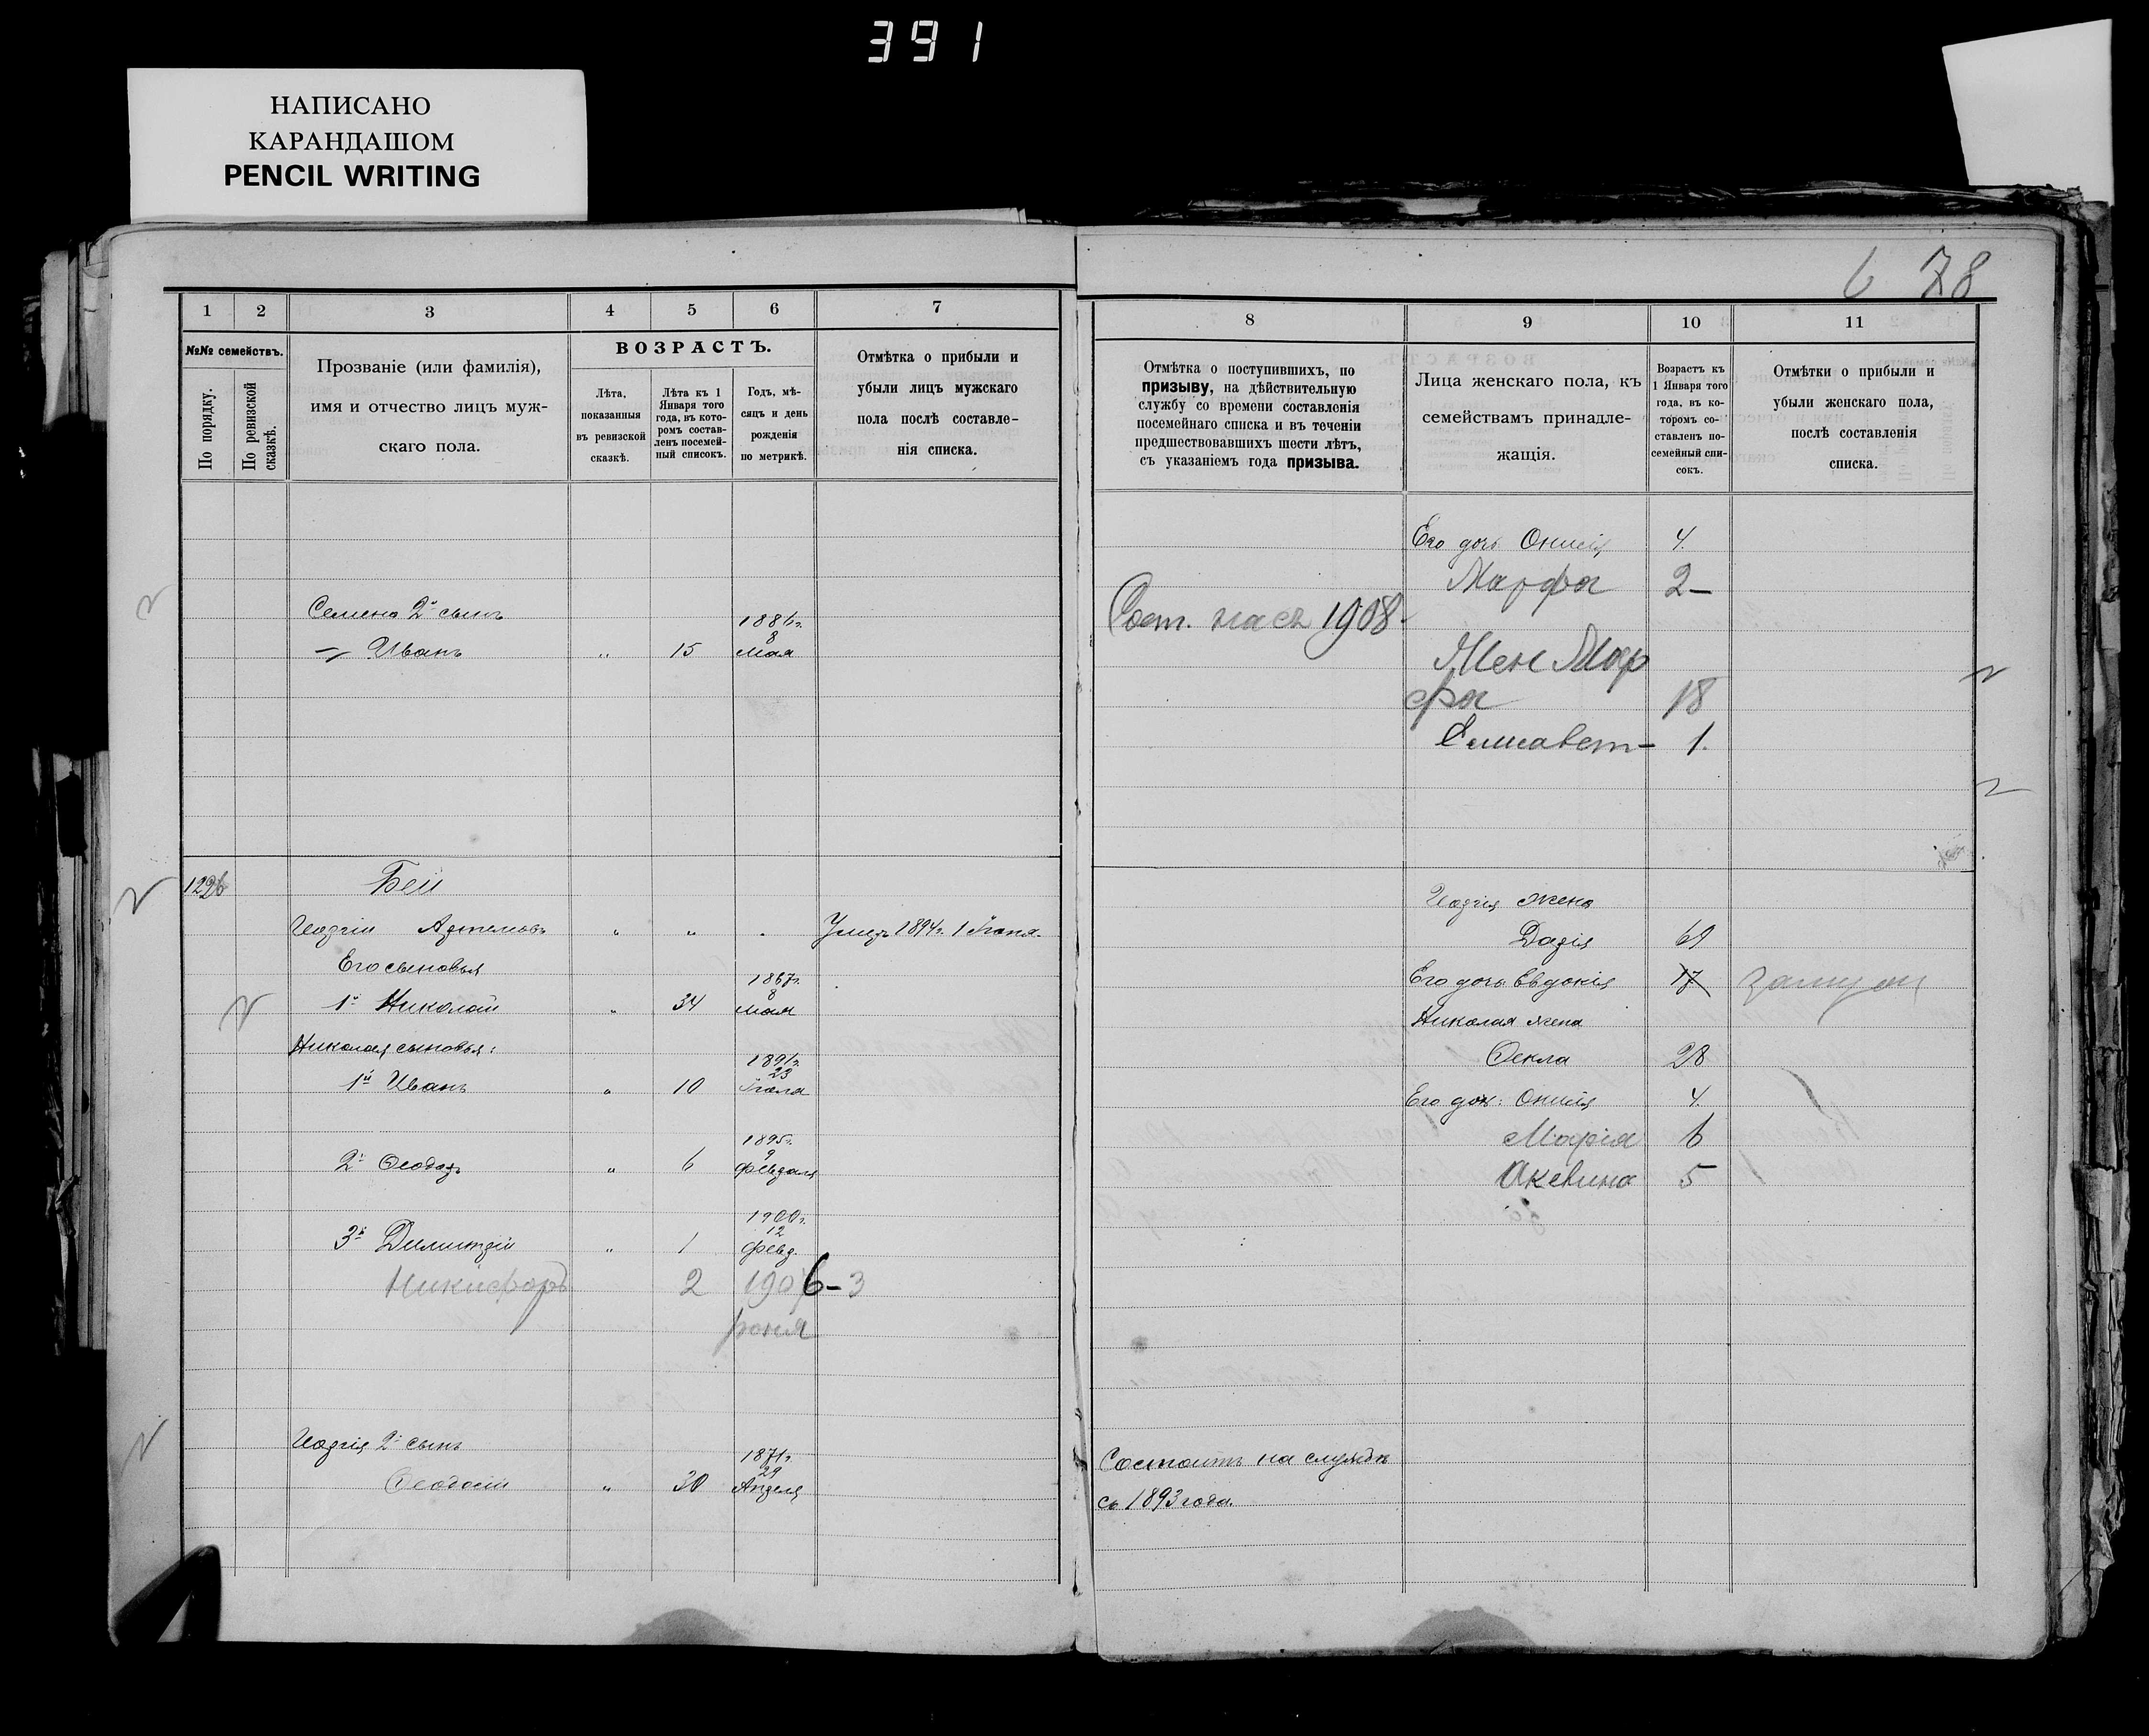 391
НАПИСАНО
КАРАНДАШОМ
PENCIL WRITING
6 78
1 2 3 4 5 6 7
№№ семействъ.
По порядку.
По ревизской сказкѣ.
Прозваніе (или фамилія),
имя и отчество лицъ муж-
скаго пола.
ВОЗРАСТЪ.
Лѣта,
показанныя
въ ревизской
сказкѣ.
Лѣта къ 1
Января того
года, въ кото-
ромъ состав-
ленъ посемей-
ный списокъ.
Годъ, мѣ-
сяцъ и день
рожденія
по метрикѣ.
Отмѣтка о прибыли и
убыли лицъ мужскаго
пола послѣ составле-
нія списка.
Семена 2й сынъ
1886г.
8
Иванъ " 15 мая
Бей
Артемовъ " " Умеръ 1894г.
Его сыновья
1867г.
8
1й Николай " 34 мая
Николая сыновья:
1891г.
23
1й Иванъ " 10
1895г.
9
2й " 6 февраля
1900г.
12
3й Димитрій " 1 февр.
Никифоръ 2 1906-3
2й сынъ
1871г.
29
Феодосій " 30 Апреля
8 9 10 11
Отмѣтка о поступившихъ, по
призыву, на дѣйствительную
службу со времени составленія
посемейнаго списка и въ теченіи
предшествовавшихъ шести лѣтъ,
съ указаніемъ года призыва.
Лица женскаго пола, къ
семействамъ принадле-
жащія.
Возрастъ къ
1 Января того
года, въ ко-
торомъ со-
ставленъ по-
семейный спи-
сокъ.
Отмѣтки о прибыли и
убыли женскаго пола,
послѣ составленія
списка.
Его дочь Онисія 4.
Марфа 2-
1908
Жен Мар
фа 18
Елисавет- 1.
жена
Дарія
Его дочь Евдокія 17
Николая жена
Фекла 28
Его доч: Онисія 4.
Марія 6
Акевина 5
Состоитъ на службѣ
съ 1893 года.